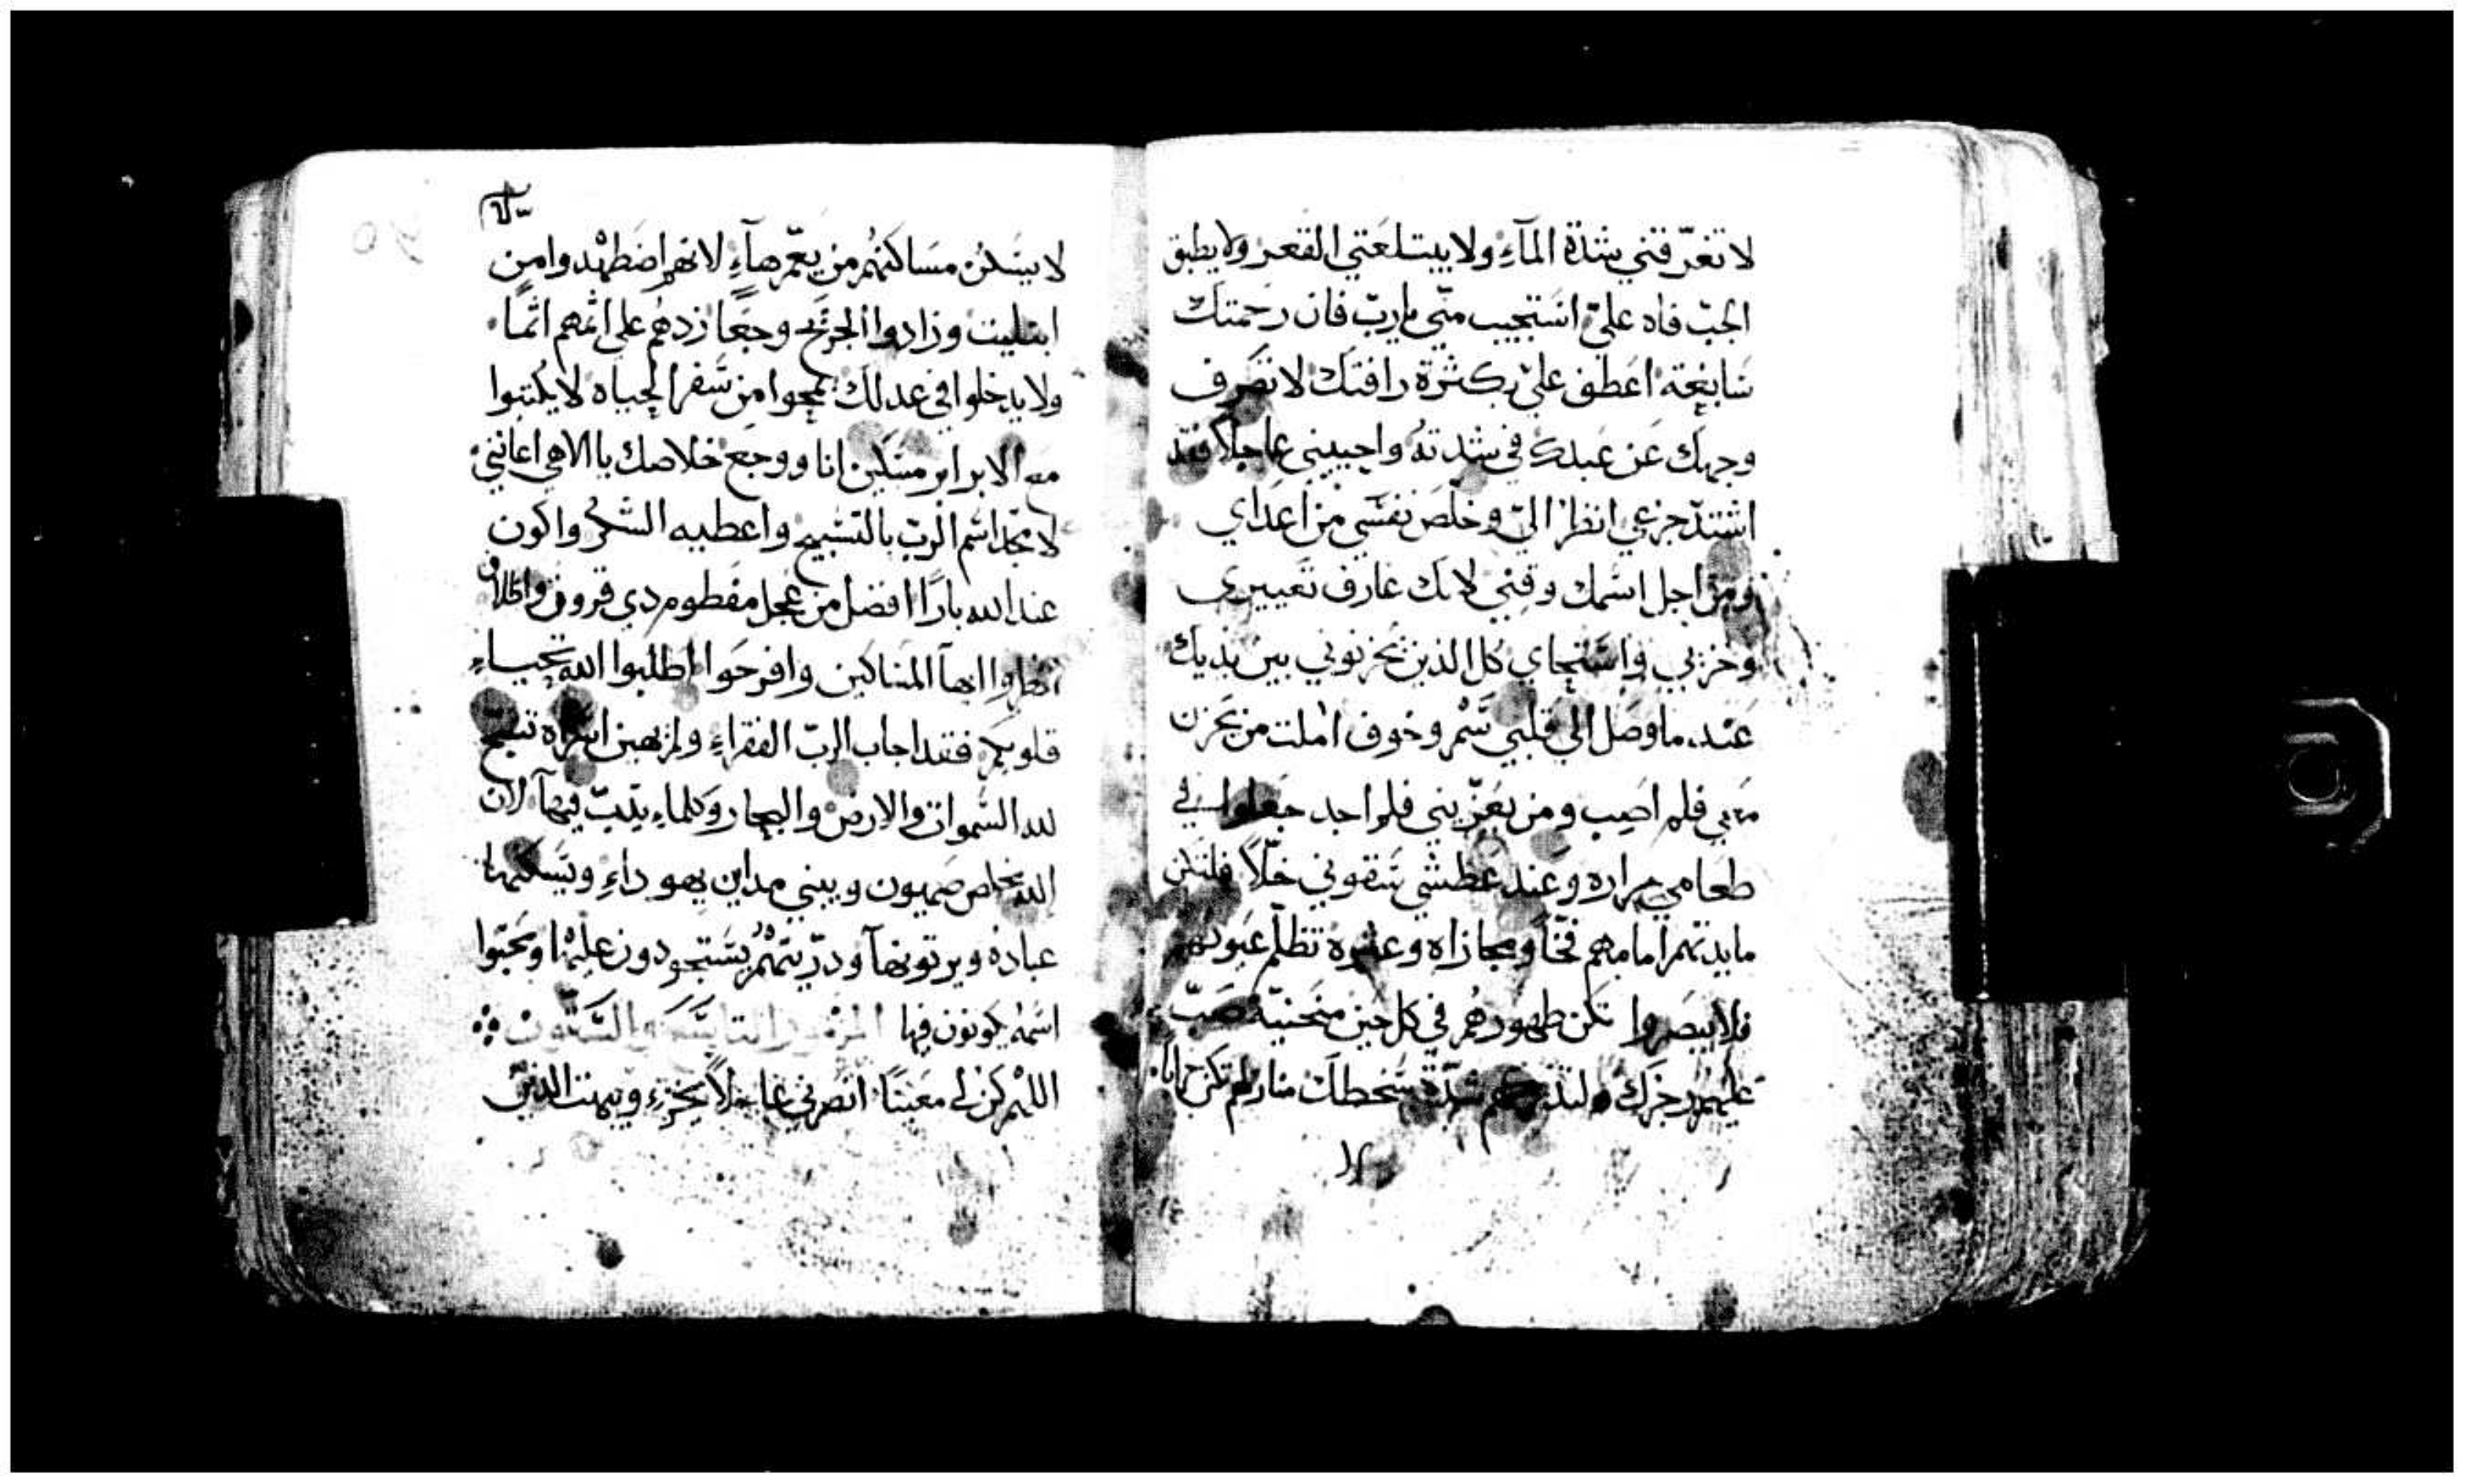 لا تغرّقني شدّة المآءِ ولا يبتلعني القعر ولا يطبق
الجبّ فاه عليّ استجيب منّي يا ربّ فان رحمتك
سَابغة اعطف عليّ بكثرة رافتك لا تصرف
وجهك عَن عَبدك في شدته واجيبني عاجلاً فقد
اشتدّ جزعي انظر اليّ وخلّص نفسي من اعداي
ومن اجل اسمك وقني لانك عارف تعييري
وخزيي واستحياي كل الذين يحزنوني بين يديك
عند ما وصل الي قلبي سَمّ وخوف املت من يحزن
معي فلم اصِب ومن يعَزّيني فلم اجد جعَلوا في
طعامي مراره وعند عَطشي سَقوني خلّاً فلتكن
مايدتهم امامهم فخّاً ومجازاه وعثره تظلّم عَيونهم
فلا يبصروا تكن ظهورهُم في كل حين منحنيّة صَبّ
عليهم رجزك ولتدركهم شدّة سَخطك منازلهم تكن خرابا
لا يسَكن مسَاكنهُم من يعّمرهآءِ لانهم اضطهَدوا من
ابتليت وزادوا الجرَيح وجعًا زدهم علي اثمهم اثمًا
ولا يدخلوا في عدلك يمحوا من سَفر الحياه لا يكتبوا
مع الابرار مسَكين انا ووجع خلاصك يا الاهي اعَانني
لامجّد اسَم الربّ بالتسَبيح واعطيه الشكر واكون
عند الله بارًا افضل من عجل مفطوم دي قرون واظلاف
انظروا ايهآ المسَاكين وافرحَوا اطلبوا الله تحيياءِ
قلوبكم فقد اجاب الربّ الفقراءِ ولم يهين اسَراه تسبّح
لله السَموات والارض والبحار وكلماءِ يدبّ فيهآ لان
الله يخلص صهيون ويبني مداين يهوداءِ ويسَكنها
عباده ويرتونهآ ودرّيتهُم يسَتحودون علَيها ومحبّوا
اسَمه يكونون فيها المزمور التاسَع والسَتّون
اللهم كن لي معَينًا انصرني عَاجلاً يخزءِ ويبهت الذين